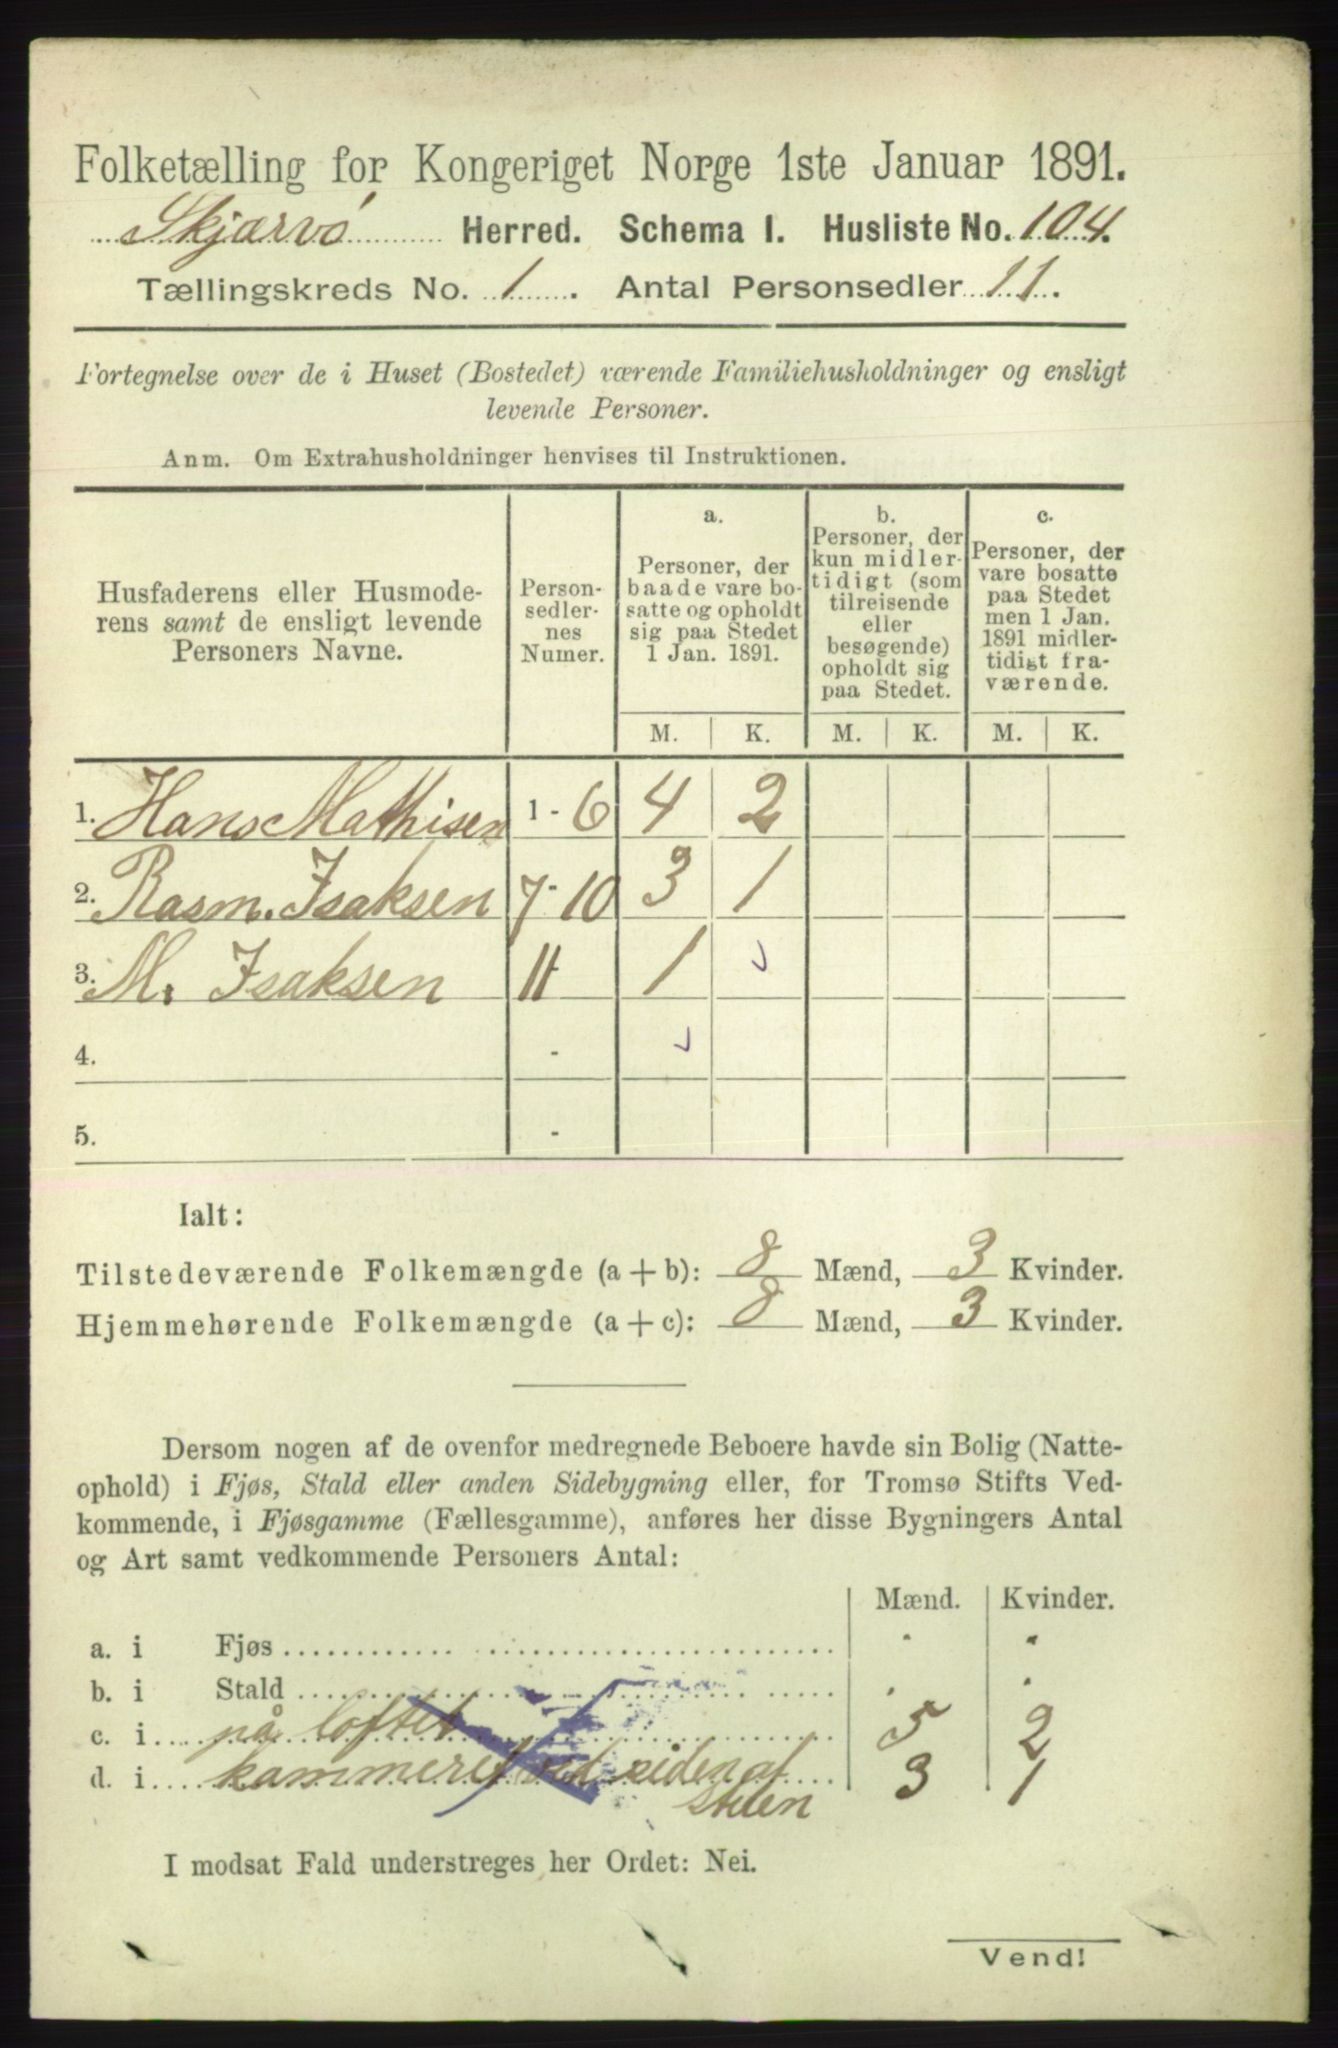 Folketælling for Kongeriget Norge 1ste Januar 1891.
Skjærvö Herred. Schema I. Husliste No. 104.
Tællingskreds No. 1. Antal Personsedler 11.
Fortegnelse over de i Huset (Bostedet) værende Familiehusholdninger og ensligt
levende Personer.
Anm. Om Extrahusholdninger henvises til Instruktionen.
Husfaderens eller Husmode-
rens samt de ensligt levende
Personers Navne.
Person-
sedler-
nes
Numer.
a.
Personer, der
baade vare bo-
satte og opholdt
sig paa Stedet
1 Jan. 1891.
b.
Personer, der
kun midler-
tidigt (som
tilreisende
eller
besøgende)
opholdt sig
paa Stedet.
c.
Personer, der
vare bosatte
paa Stedet
men 1 Jan.
1891 midler-
tidigt fra-
værende.
M. K. M. K. M. K.
1. Hans Mathisen 1-6 4 2
2. Rasm. Isaksen 7-10 3 1
3. M. Isaksen 11 1
4. -
5. -
Ialt:
Tilstedeværende Folkemængde (a + b): 8 Mænd, 3 Kvinder.
Hjemmehørende Folkemængde (a + c): 8 Mænd, 3 Kvinder.
Dersom nogen af de ovenfor medregnede Beboere havde sin Bolig (Natte-
ophold) i Fjøs, Stald eller anden Sidebygning eller, for Tromsø Stifts Ved-
kommende, i Fjøsgamme (Fællesgamme), anføres her disse Bygningers Antal
og Art samt vedkommende Personers Antal:
Mænd. Kvinder.
a. i Fjøs
b. i Stald
c. i på loftet 5 2
d. i kammeret ved siden af 3 1
stuen
I modsat Fald understreges her Ordet: Nei.
Vend!